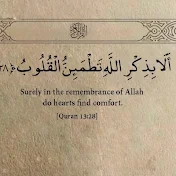 أَلَا بِذِكْرِ اللَّهِ تَطْمَئِنُّ الْقُلُوبُ ﴿٢٨
Surely in the remembrance of Allah
do hearts find comfort.
[Quran 13:28]